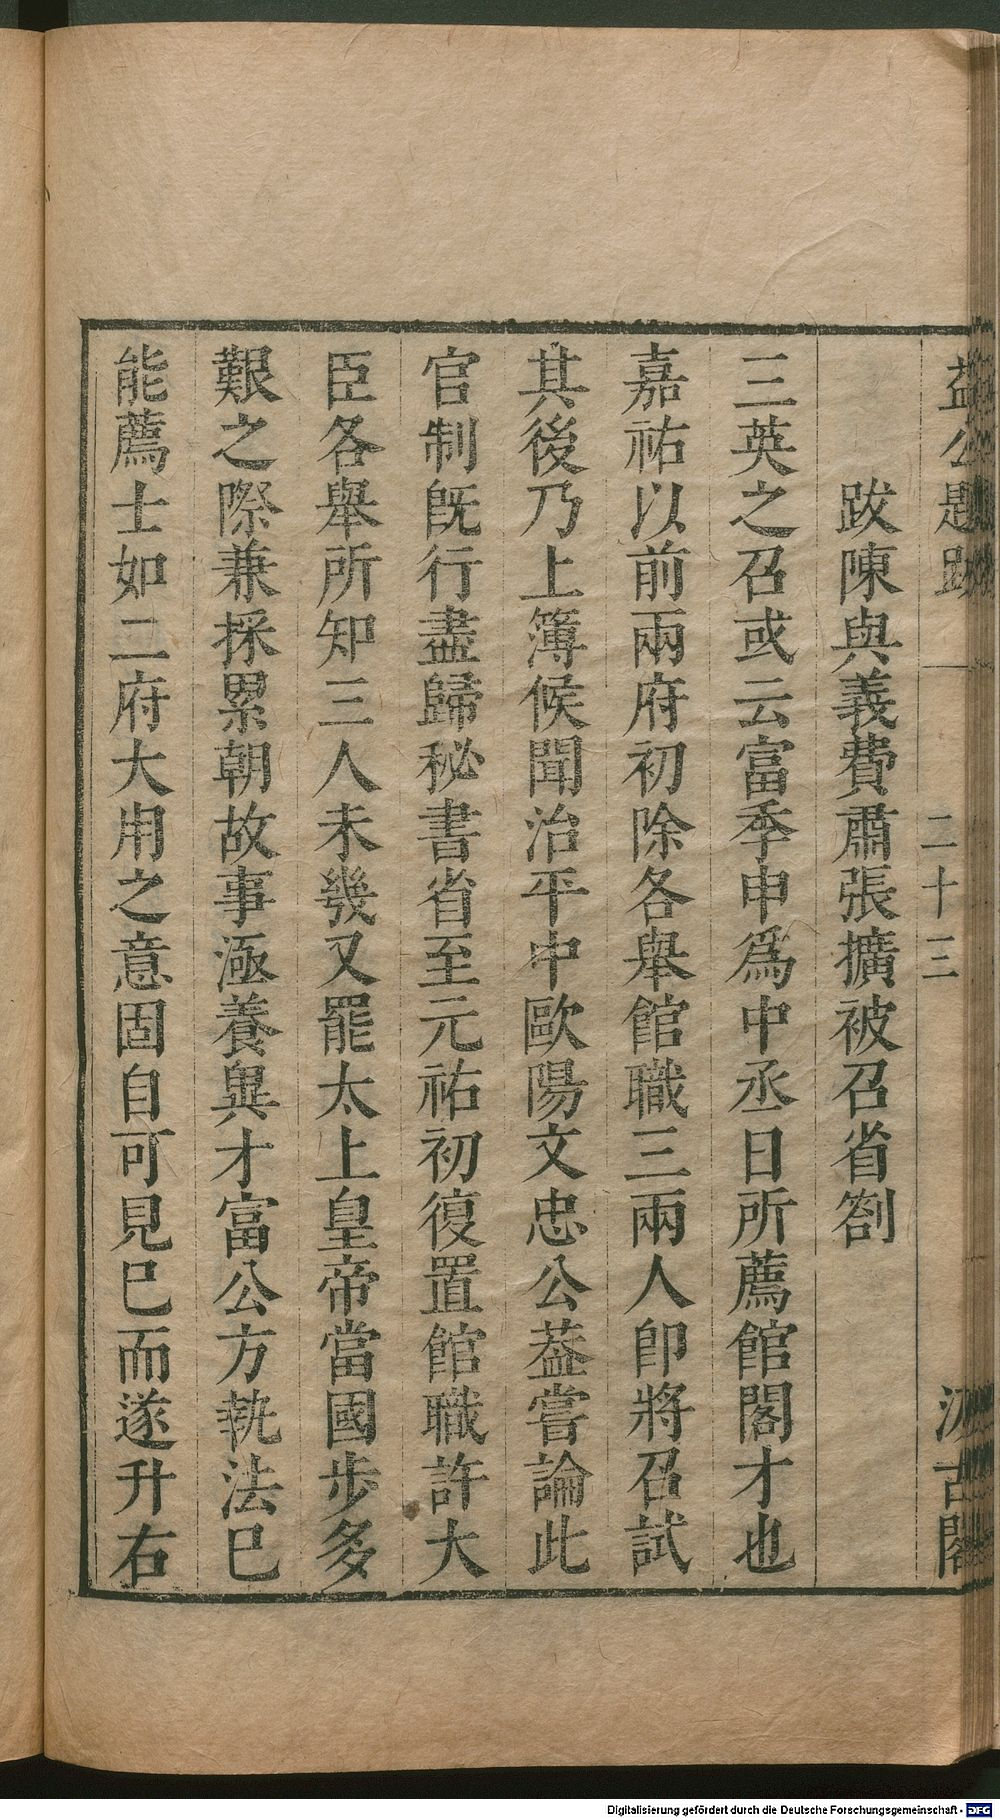 益公題跋 一 二十三 汲古閣
跋陳與義費肅張擴被召省劄
三英之召或云富季申爲中丞日所薦館閣才也
嘉祐以前兩府初除各舉館職三兩人卽將召試
其後乃上簿候聞治平中歐陽文忠公葢嘗論此
官制旣行盡歸秘書省至元祐初復置館職許大
臣各舉所知三人未幾又罷太上皇帝當國步多
艱之際兼採累朝故事涵養異才富公方執法巳
能薦士如二府大用之意固自可見巳而遂升右
Digitalisierung gefördert durch die Deutsche Forschungsgemeinschaft - DFG